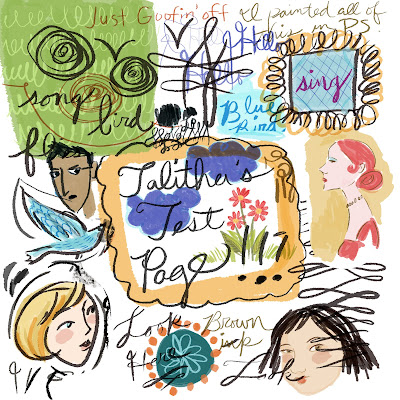 Just Goofin' off
I painted all of
this in PS
Hello
sing
song bird
Blue
Talitha's
Test
Page
Look
Here
Brown
ink